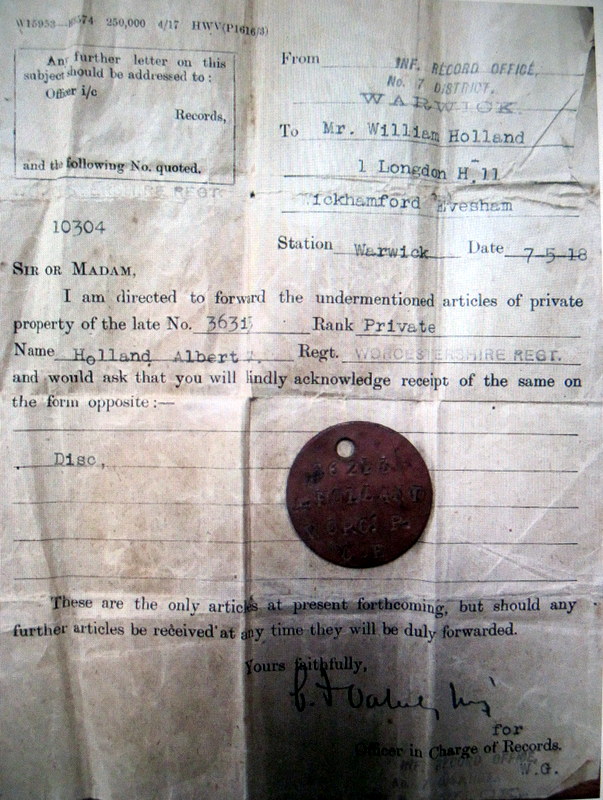 250,000 4/17 HWV(P1616/3)
Any further letter on this
subject should be addressed to :
Officer i/c
Records,
and the following No. quoted.
From INF. RECORD OFFICE,
No. 7 DISTRICT.
WARWICK.
To Mr. William Holland
1 Longdon Hill
Wickhamford Evesham
10304
Station Warwick Date 7-5-18
SIR OR MADAM,
I am directed to forward the undermentioned articles of private
property of the late No. Rank Private
Name Holland Albert Regt. WORCESTERSHIRE REGT.
and would ask that you will kindly acknowledge receipt of the same on
the form opposite :—
Disc,
These are the only articles at present forthcoming, but should any
further articles be received at any time they will be duly forwarded.
Yours faithfully,
for
Officer in Charge of Records.
INF. RECORD OFFICE
W.G.